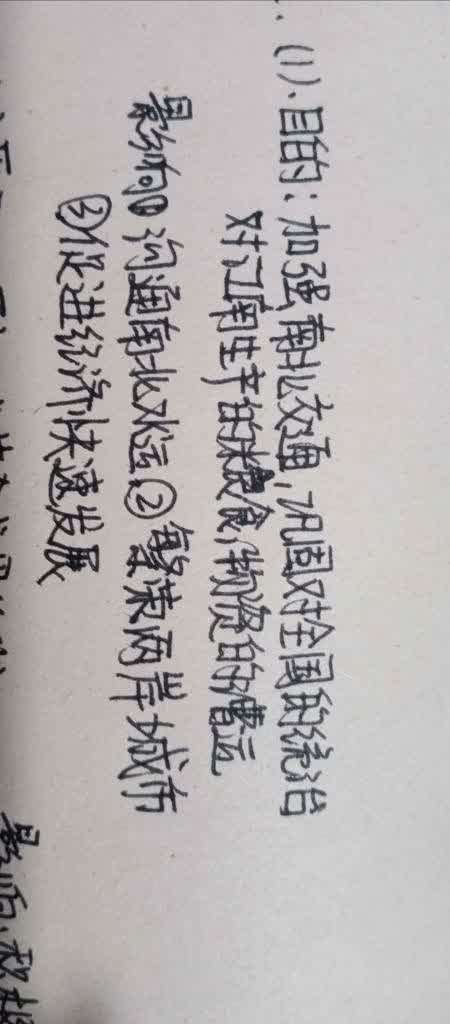 (1).目的：加强南北交通，巩固对全国的统治
对江南生产的粮食，物资的漕运
影响①沟通南北水运②繁荣两岸城市
③促进经济快速发展
影响，积极